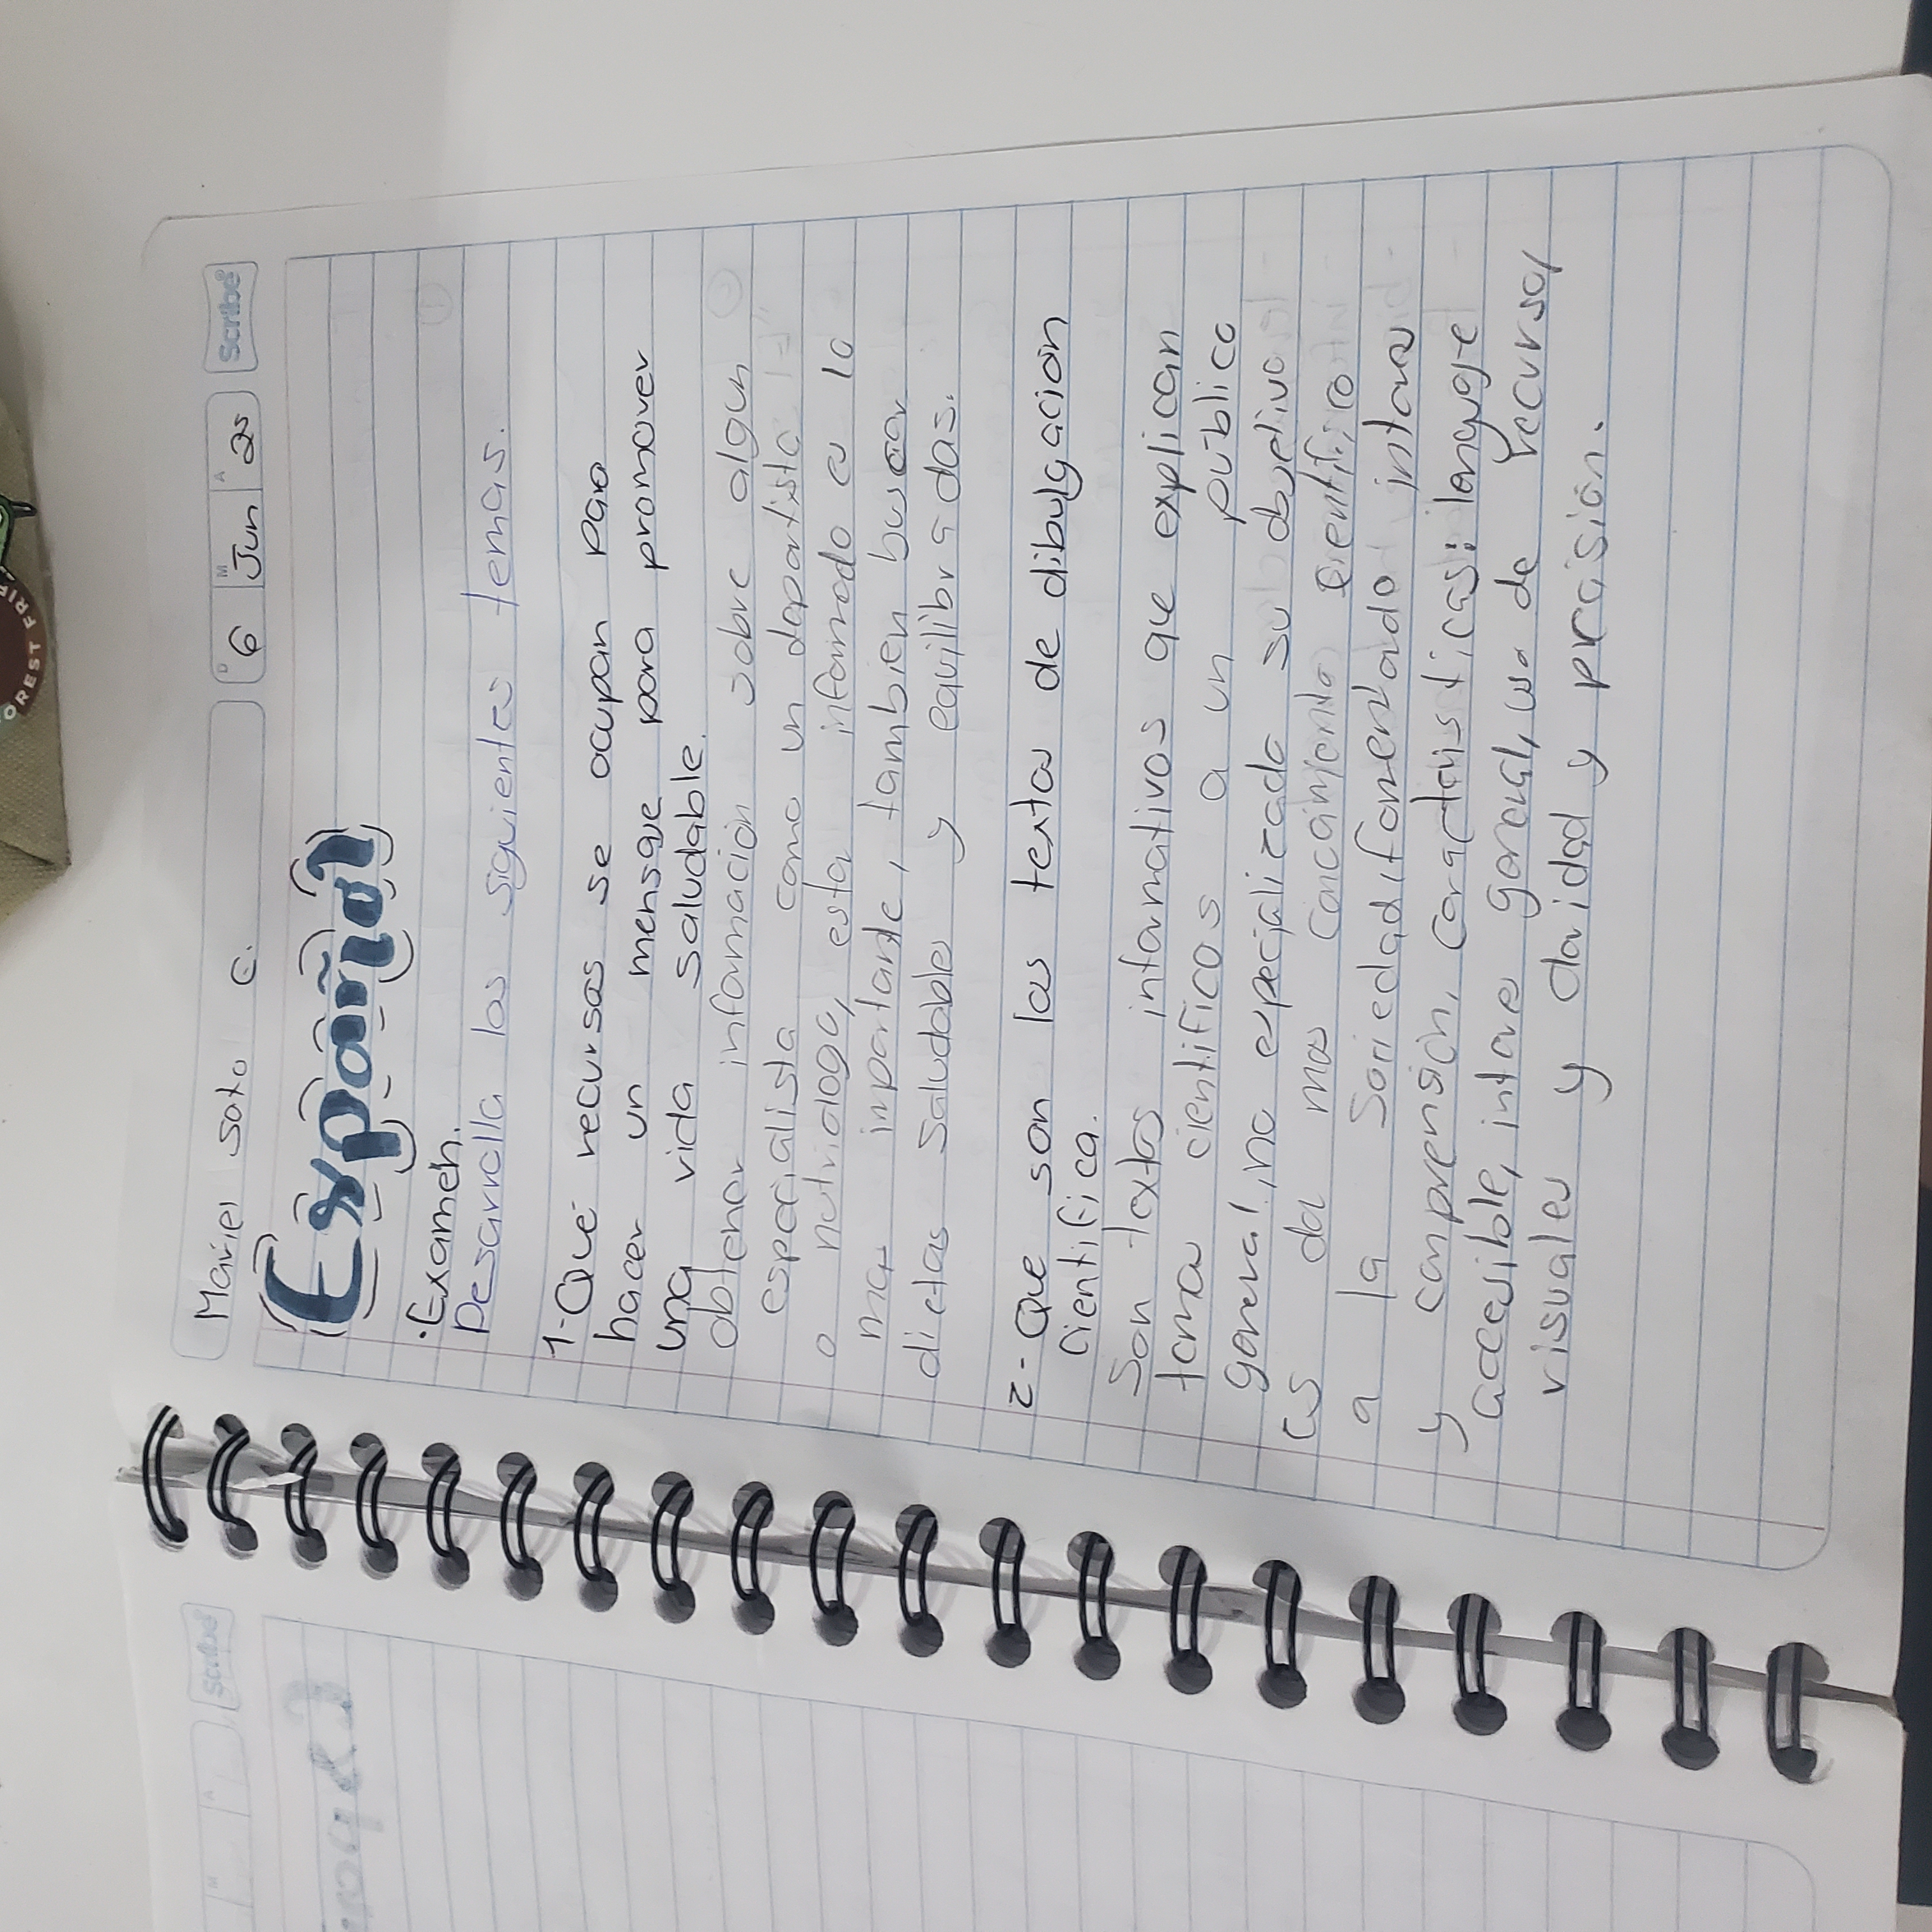 Mariel Soto C.
6 Jun 25
Scribe
Español
•Examen.
Desarrolla los siguientes temas.
1-Que recursos se ocupan para
hacer un mensaje para promover
una vida saludable.
obtener informacion sobre algun
especialista como un deportista
o nutriologo, estar informado es lo
mas importante, tambien buscar
dietas saludables y equilibradas.
2-Que son los textos de dibulgacion
cientifica.
Son textos informativos que explican
temas cientificos a un público
general no especializado su objetivo
es dar mas conocimiento cientifico
a la Sociedad fomentando interes
y comprensión, caracteristicas: lenguaje
accesible, interes general, uso de recursos
visuales y claridad y precisión.
Scribe